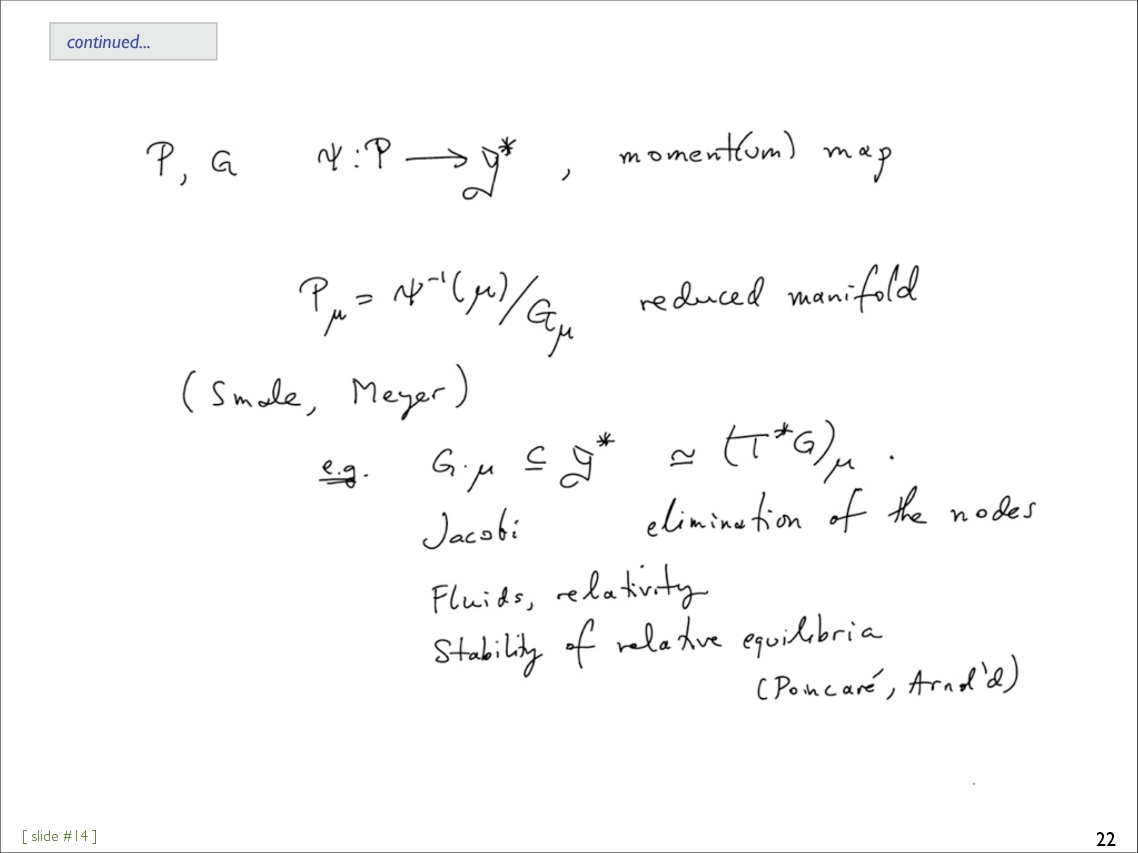 continued...
P, G Ψ : P ⟶ 𝔤* , moment(um) map
P_μ = Ψ⁻¹(μ)/G_μ reduced manifold
(Smale, Meyer)
e.g. G·μ ⊆ 𝔤* ≃ (T*G)_μ .
Jacobi elimination of the nodes
Fluids, relativity
Stability of relative equilibria
(Poincaré, Arnol'd)
[ slide #14 ]
22